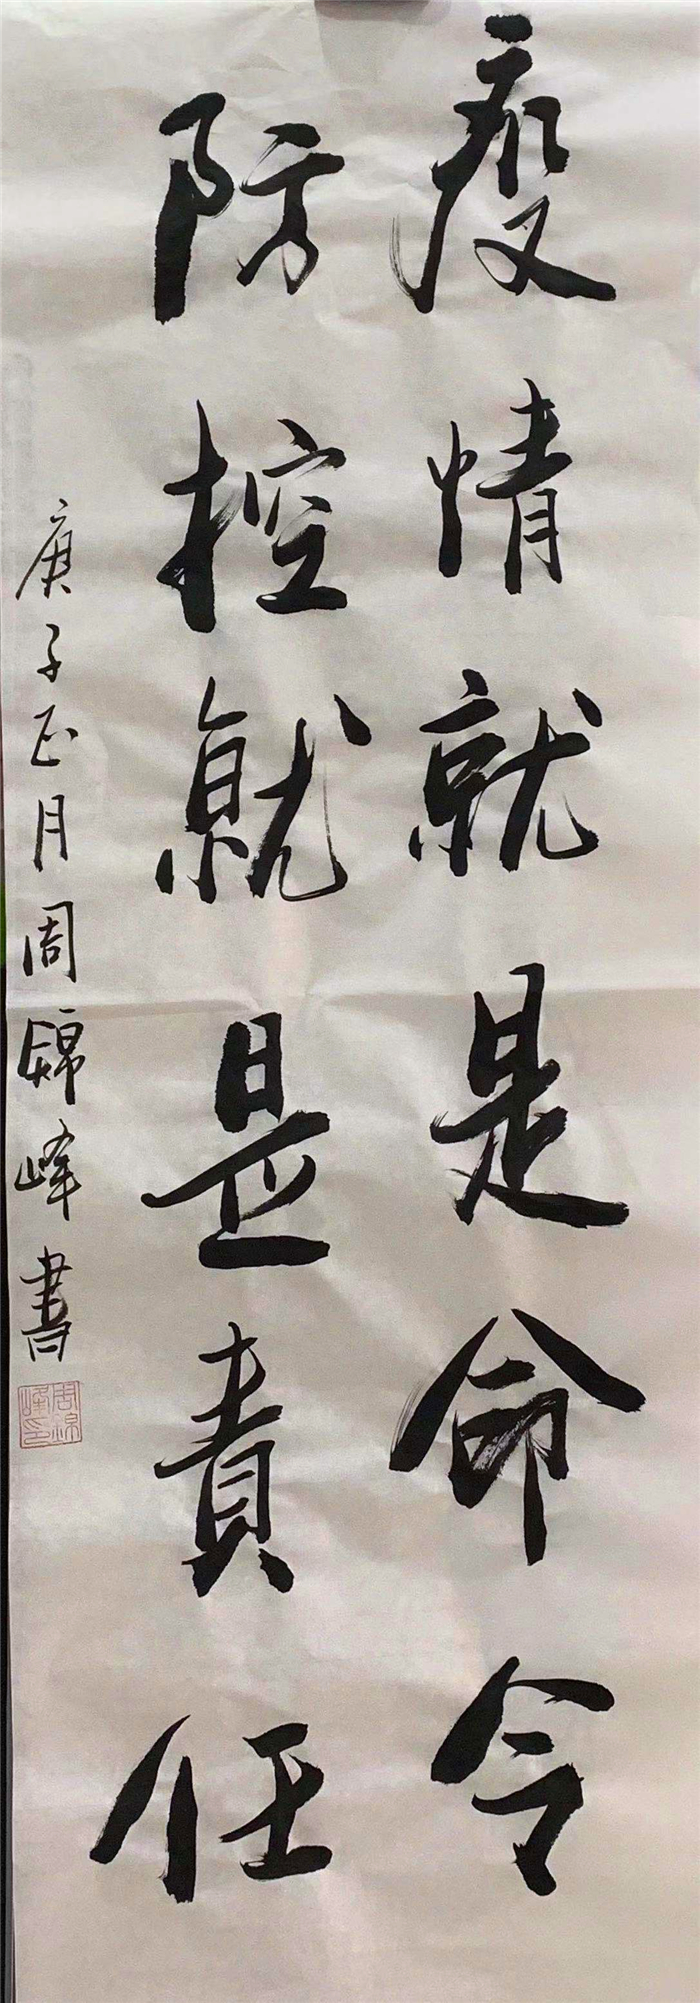 疫情就是命令
防控就是責任
庚子正月周錦峰書
周錦峰印